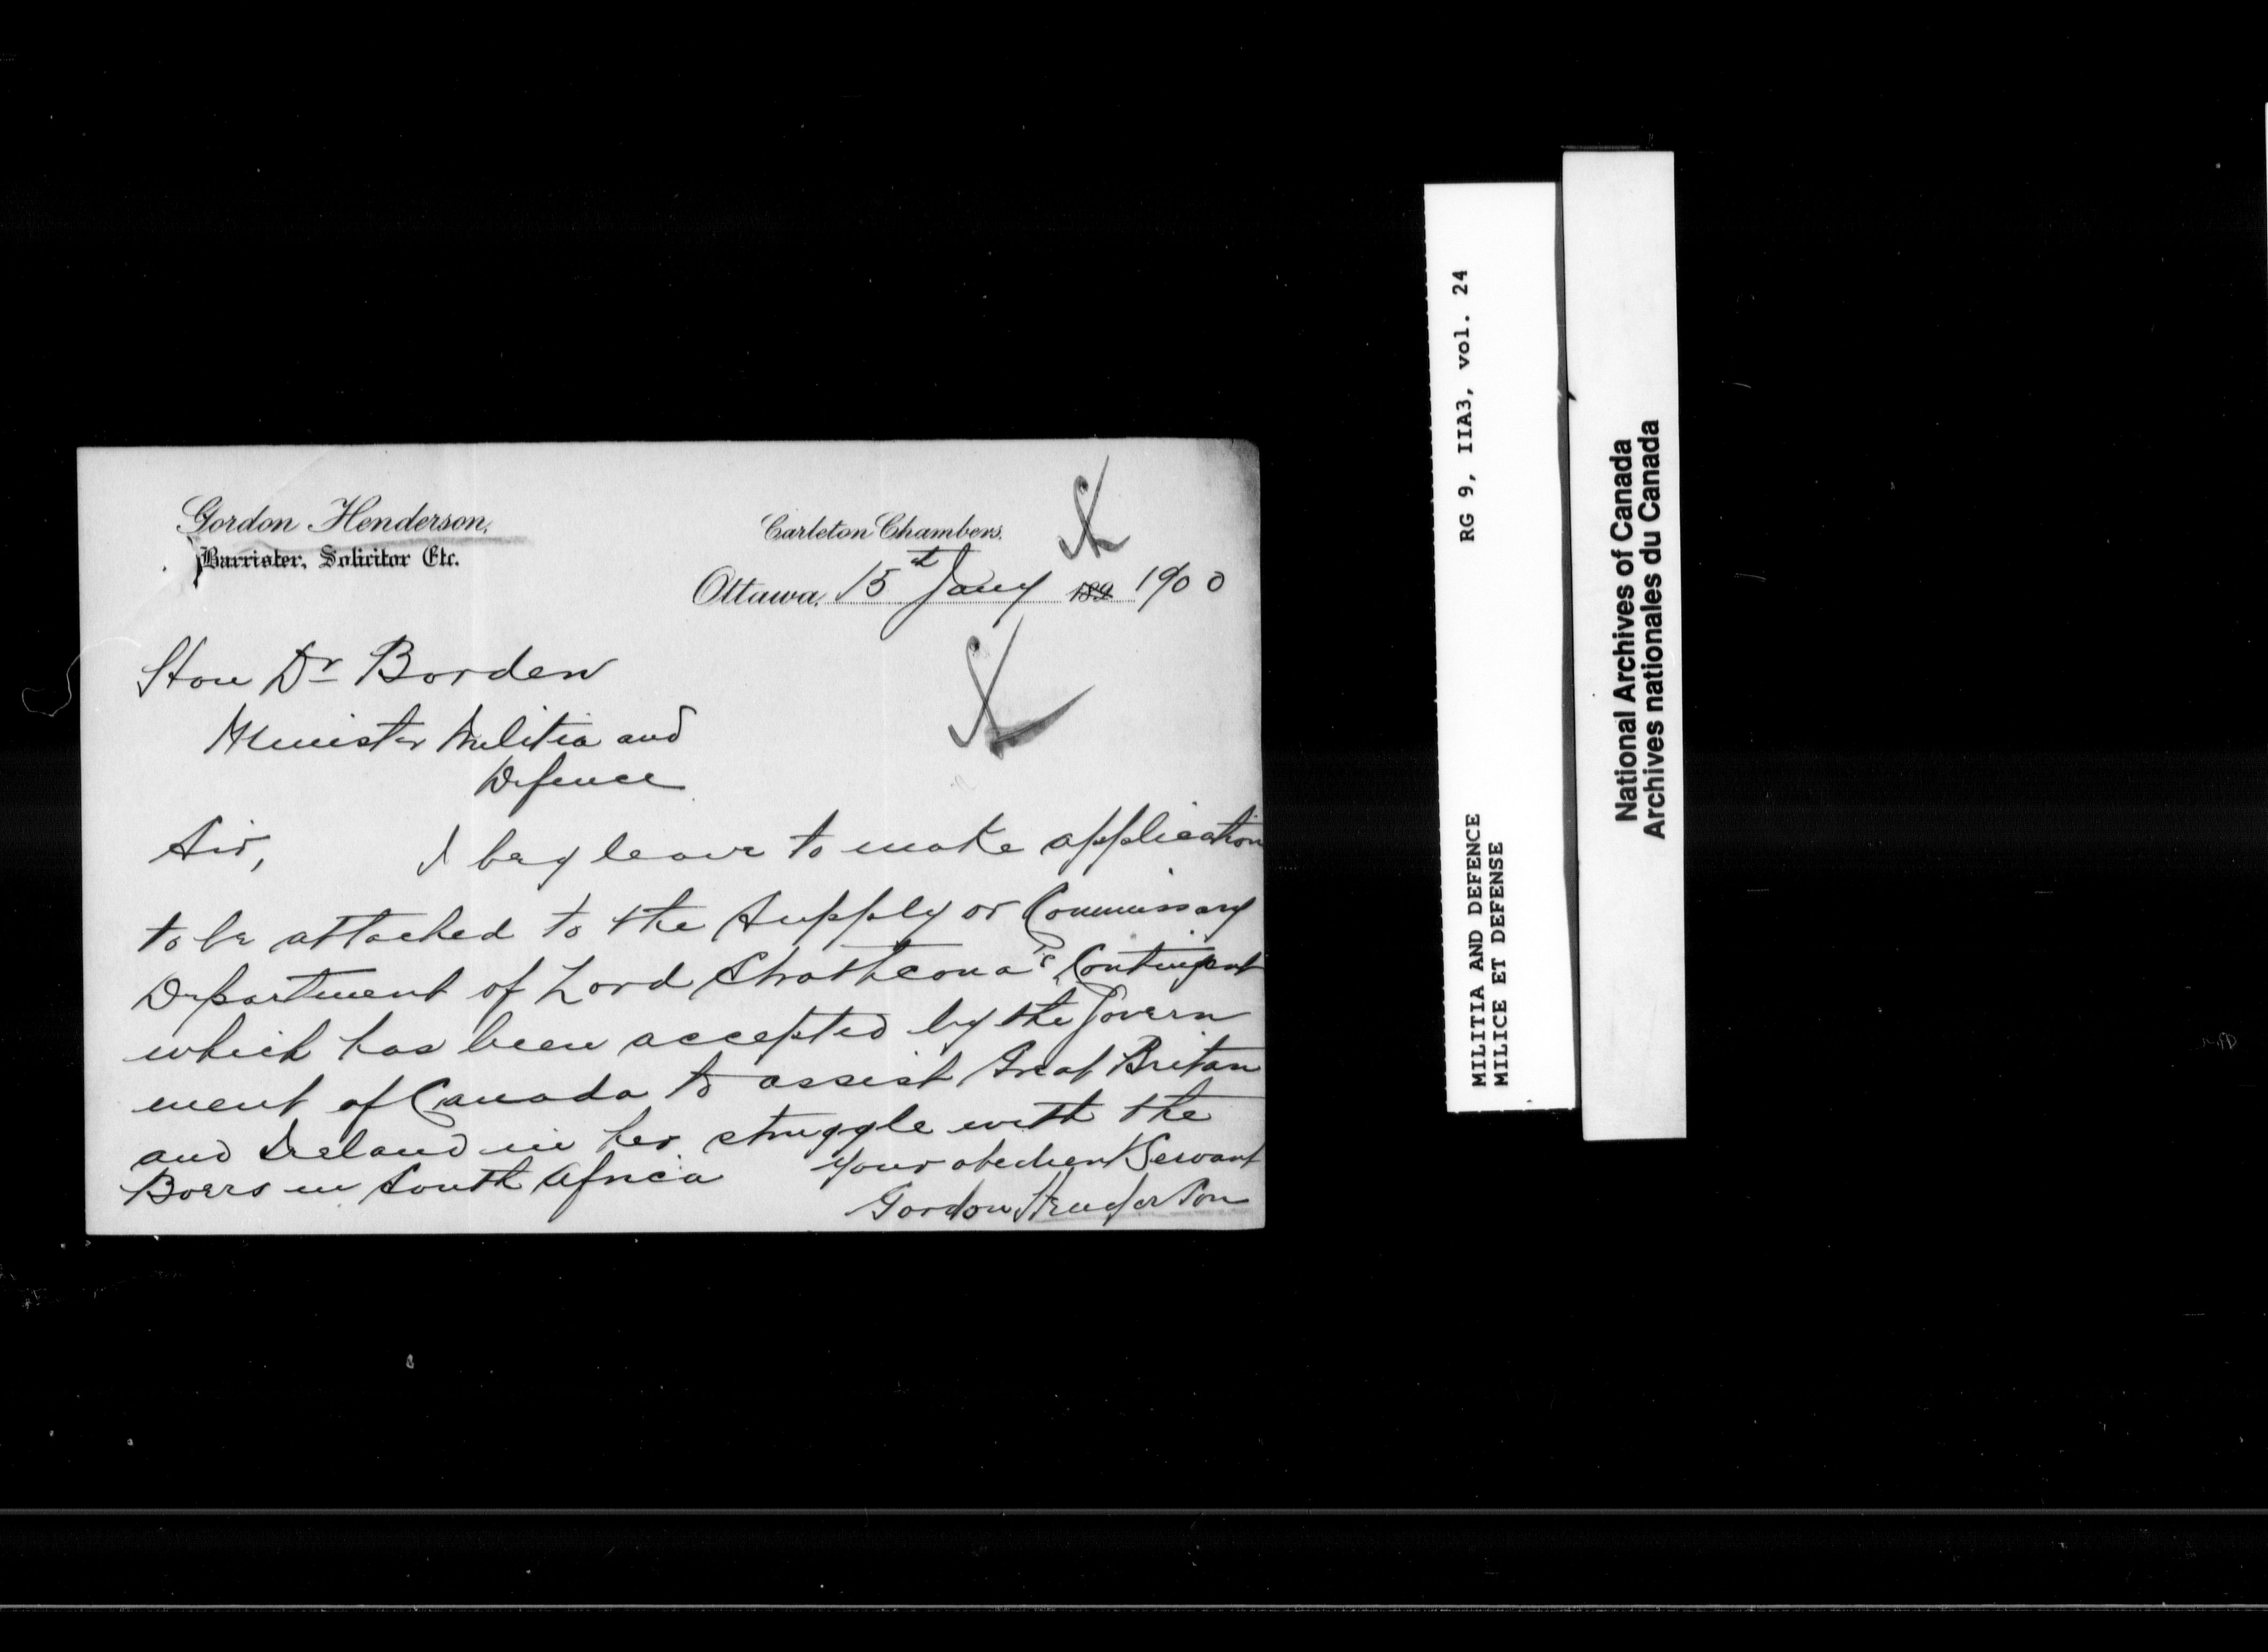 Gordon Henderson,
Barrister, Solicitor Etc.
Carleton Chambers.
Ottawa, 15th Jany 189 1900
Hon Dr Borden
Minister Militia and
Defence
Sir, I beg leave to make application
to be attached to the Supply or Commissary
Department of Lord Strathcona's Contingent
which has been accepted by the Govern
ment of Canada to assist Great Britain
and Ireland in her struggle with the
Boers in South Africa
Your obedient Servant
Gordon Henderson
RG 9, IIA3, vol. 24
MILITIA AND DEFENCE
MILICE ET DEFENSE
National Archives of Canada
Archives nationales du Canada